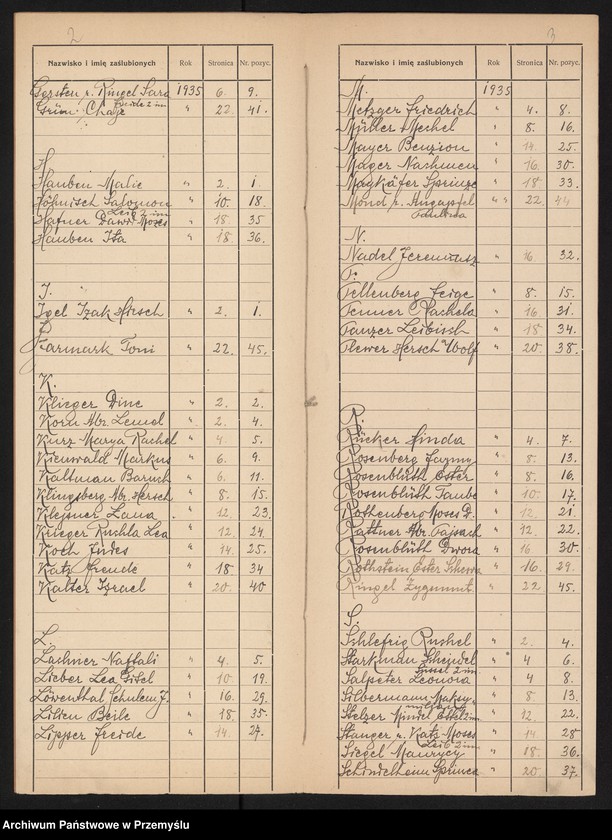 2
Nazwisko i imię zaślubionych Rok Stronica Nr. pozyc.
Gersten r. Ringel Sara 1935 6. 9.
Freide 2 im
Grün Chaje " 22. 41.
H
Hauben Malie " 2. 1.
Höhnisch Salomon " 10. 18.
Leib 2 im
Hafner Dawid Moses " 18. 35
Hauben Ita " 18. 36.
J.
Igel Izak Hirsch " 2. 1.
Jarmark Toni " 22. 45.
K.
Klieger Dine " 2. 2.
Korn Abr. Lemel " 2. 4.
Kurz Marya Rachel " 4. 5.
Kienwald Markus " 6. 9.
Kaltman Baruch " 6. 11.
Klingsberg Abr. Hersch " 8. 15.
Klesner Lana " 12. 23.
Krieger Ruchla Lea " 12. 24.
Koch Judes " 14. 25.
Katz Freude " 18. 34
Kalter Izrael " 20. 40
L.
Lachner Naftali " 4. 5.
Lieber Lea Gisel " 10. 19.
Löwenthal Schulem J. " 16. 29.
Lilien Beile " 18. 35.
Lipper Freide " 14. 27.
3
Nazwisko i imię zaślubionych Rok Stronica Nr. pozyc.
M. 1935
Metzger Friedrich " 4. 8.
Müller Mechel " 8. 16.
Mayer Benzion " 14. 25.
Mager Nachmen " 16. 30.
Maykäfer Sprinze " 18. 33.
Mond r. Angapfel " 22. 44
Paulina
N.
Nadel Jeremiasz " 16. 32.
Fellenberg Feige " 8. 15.
Rachela " 16. 31.
Leibisch " 18. 34.
Hersch Wolf " 20. 38.
R.
Rücker Hinda " 4. 7.
Rosenberg Fanny " 8. 13.
Rosenblüth Ester " 8. 16.
Rosenblüth Taube " 10. 17.
Rothenberg Moses D. " 12. 21.
Rattner Abr. Fajsach " 12. 22.
Rosenblüth Dwora " 16. 30.
Rothstein Ester Schewa " 16. 29.
Ringel Zygmunt " 22. 45.
S.
Schlefrig Ruchel " 2. 4.
Starkman Scheindel " 4. 6.
2 im
Salpeter Leonora " 4. 8.
Silbermann Maksy " 8. 13.
miljan
Stelzer Mindel Etel 2 im. " 12. 22.
Stanger r. Katz Moses " 14. 28
Leib 2 im
Siegel Maurycy " 18. 36.
Schindelheim Sprinca " 20. 37.
Archiwum Państwowe w Przemyślu